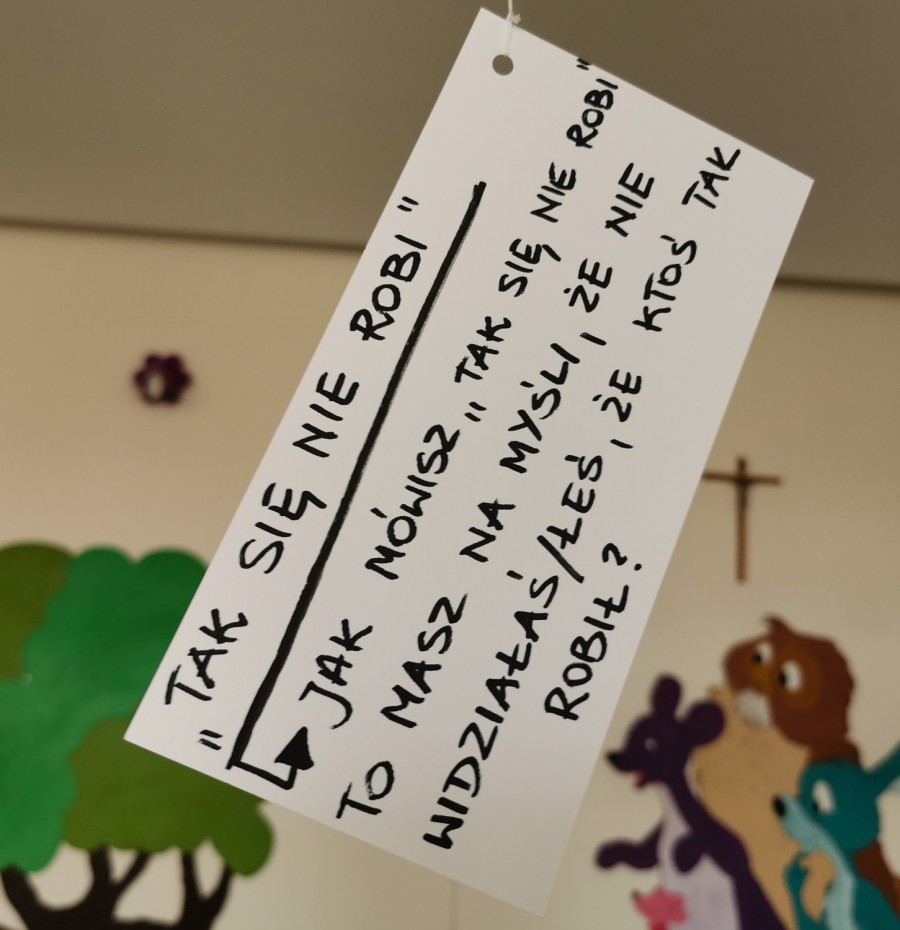 "TAK SIĘ NIE ROBI"
JAK MÓWISZ „TAK SIĘ NIE ROBI"
TO MASZ NA MYŚLI, ŻE NIE
WIDZIAŁAŚ/ŁEŚ, ŻE KTOŚ TAK
ROBIŁ?